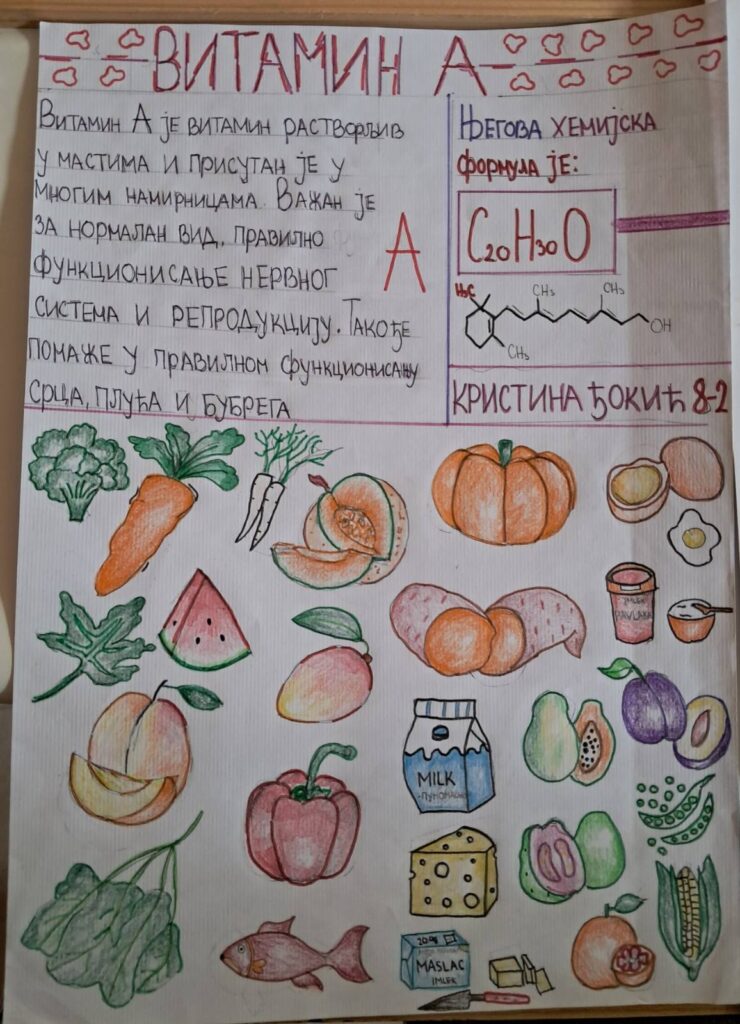 ВИТАМИН А
Витамин А је витамин растворљив
у мастима и присутан је у
многим намирницама. Важан је
за нормалан вид, правилно
функционисање нервног
система и репродукцију. Такође
помаже у правилном функционисању
срца, плућа и бубрега
А
Његова хемијска
формула је:
C20H30O
H₃C
CH₃
CH₃
OH
CH₃
КРИСТИНА ЂОКИЋ 8-2
IMLEK
PAVLAKA
MILK
20%
MASLAC
IMLEK